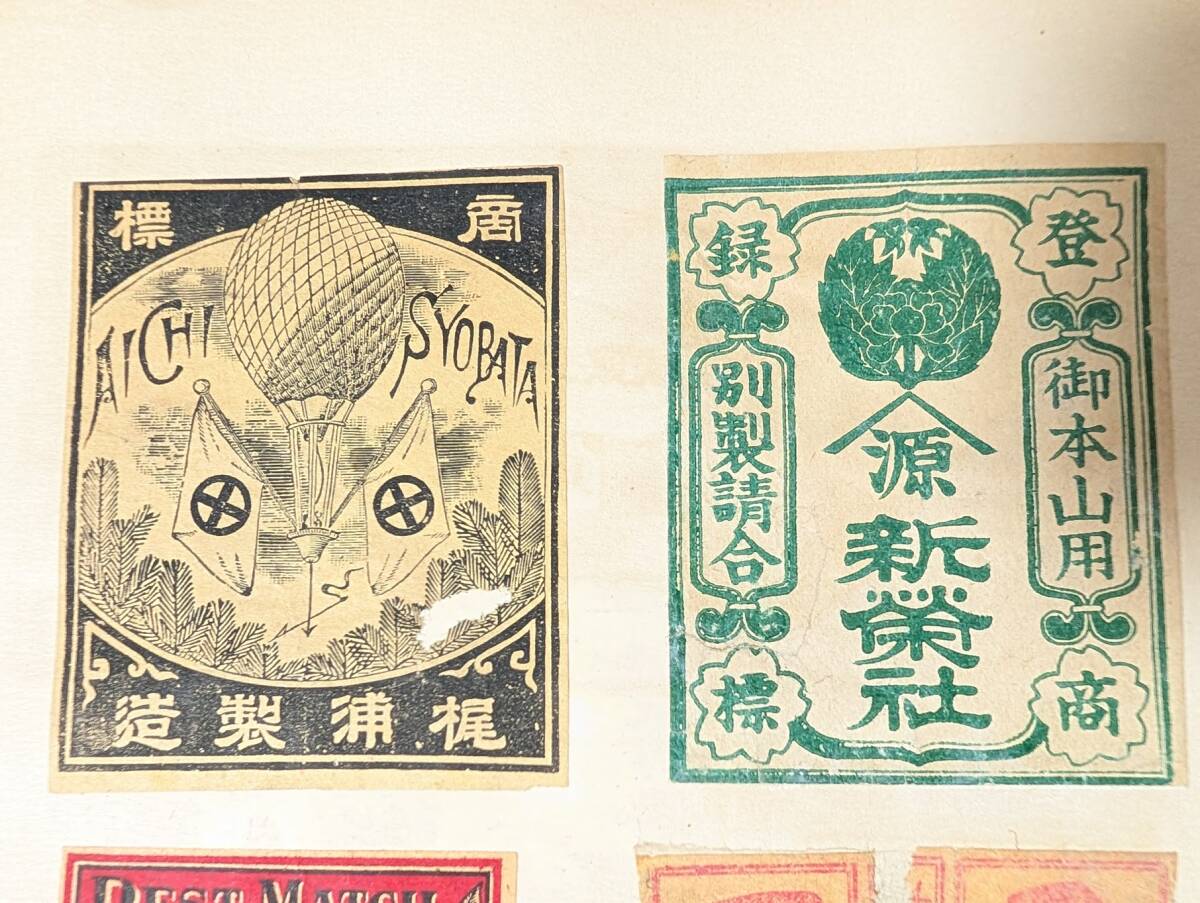 商標
AICHI SYOBATA
梶浦製造
登録
商標
御本山用
別製請合
源
新榮社
BEST MATCH